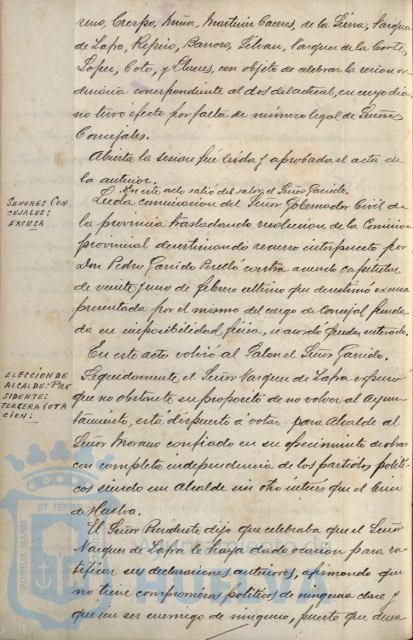 reno, Crespo, Muñoz, Martin Cáceres, de la Sierra, Vazquez
de Lapra, Repiso, Barroso, Téllan, Vazquez de la Corte,
Lopez, Coto, y Llanes, con objeto de celebrar la sesion or-
dinaria correspondiente al dos del actual, en cuyo dia
no tuvo efecto por falta de número legal de Señores
Concejales.
Abierta la sesion fué leida y aprobada el acta de
la anterior.
En este acto salió del salon el Señor Garrido.
SEÑORES CON
CEJALES:
EXCUSA
Leida comunicacion del Señor Gobernador Civil de
la provincia trasladando resolucion de la Comision
provincial desestimando recurso interpuesto por
Don Pedro Garrido Perelló contra acuerdo capitular
de veinte y uno de febrero ultimo que desestimó excusa
presentada por el mismo del cargo de Concejal funda-
da en imposibilidad física, se acordó quedar enterado.
En este acto volvió al Salon el Señor Garrido.
ELECCION DE
ALCALDE: PRE
SIDENTE:
TERCERA VOTA
CION:
Seguidamente el Señor Vazquez de Lapra expuso
que no obstante su proposito de no volver al Ayun-
tamiento, está dispuesto á votar para Alcalde al
Señor Moreno confiado en su ofrecimiento de obrar
con completa independencia de los partidos politi-
cos siendo un Alcalde sin otro interés que el bien
de Huelva.
El Señor Presidente dijo que celebraba que el Señor
Vazquez de Lapra le haya dado ocasion para ra-
tificar sus declaraciones anteriores, afirmando que
no tiene compromisos politicos de ninguna clase y
que no es enemigo de ninguno, puesto que desea
PORTUS MARIS
ET TERR
Ayuntamiento de
HUELVA